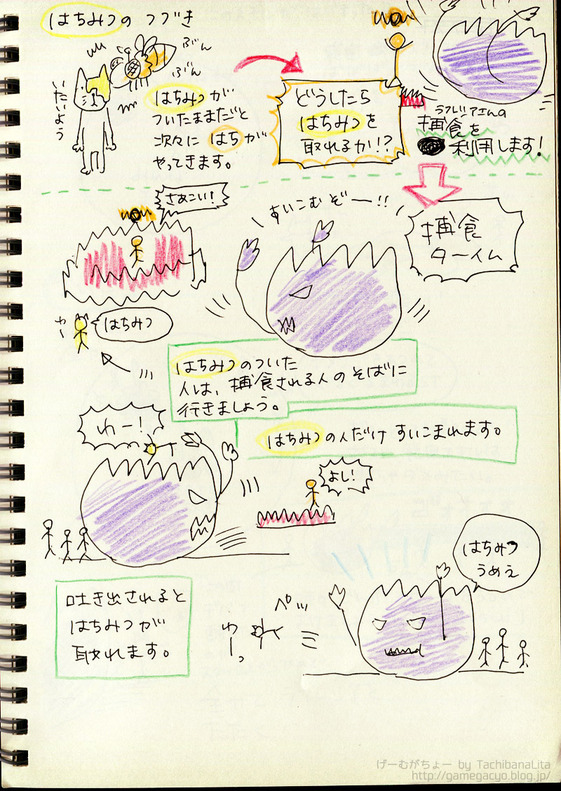 はちみつ の つづき
ぶん
ぶん
いたいよう
はちみつ が
ついたままだと
次々に はちが
やってきます。
どうしたら
はちみつを
取れるか!?
ラフレシアさんの
捕食を
利用します!
さあこい!
すいこむぞー!!
捕食
タイム
わー
はちみつ
はちみつ のついた
人は、捕食される人のそばに
行きましょう。
はちみつ の人だけ すいこまれます。
わー!
よし!
はちみつ
うめえ
吐き出されると
はちみつが
取れます。
ペッ
わーっ
げーむがちょー by TachibanaLita
http://gamegacyo.blog.jp/